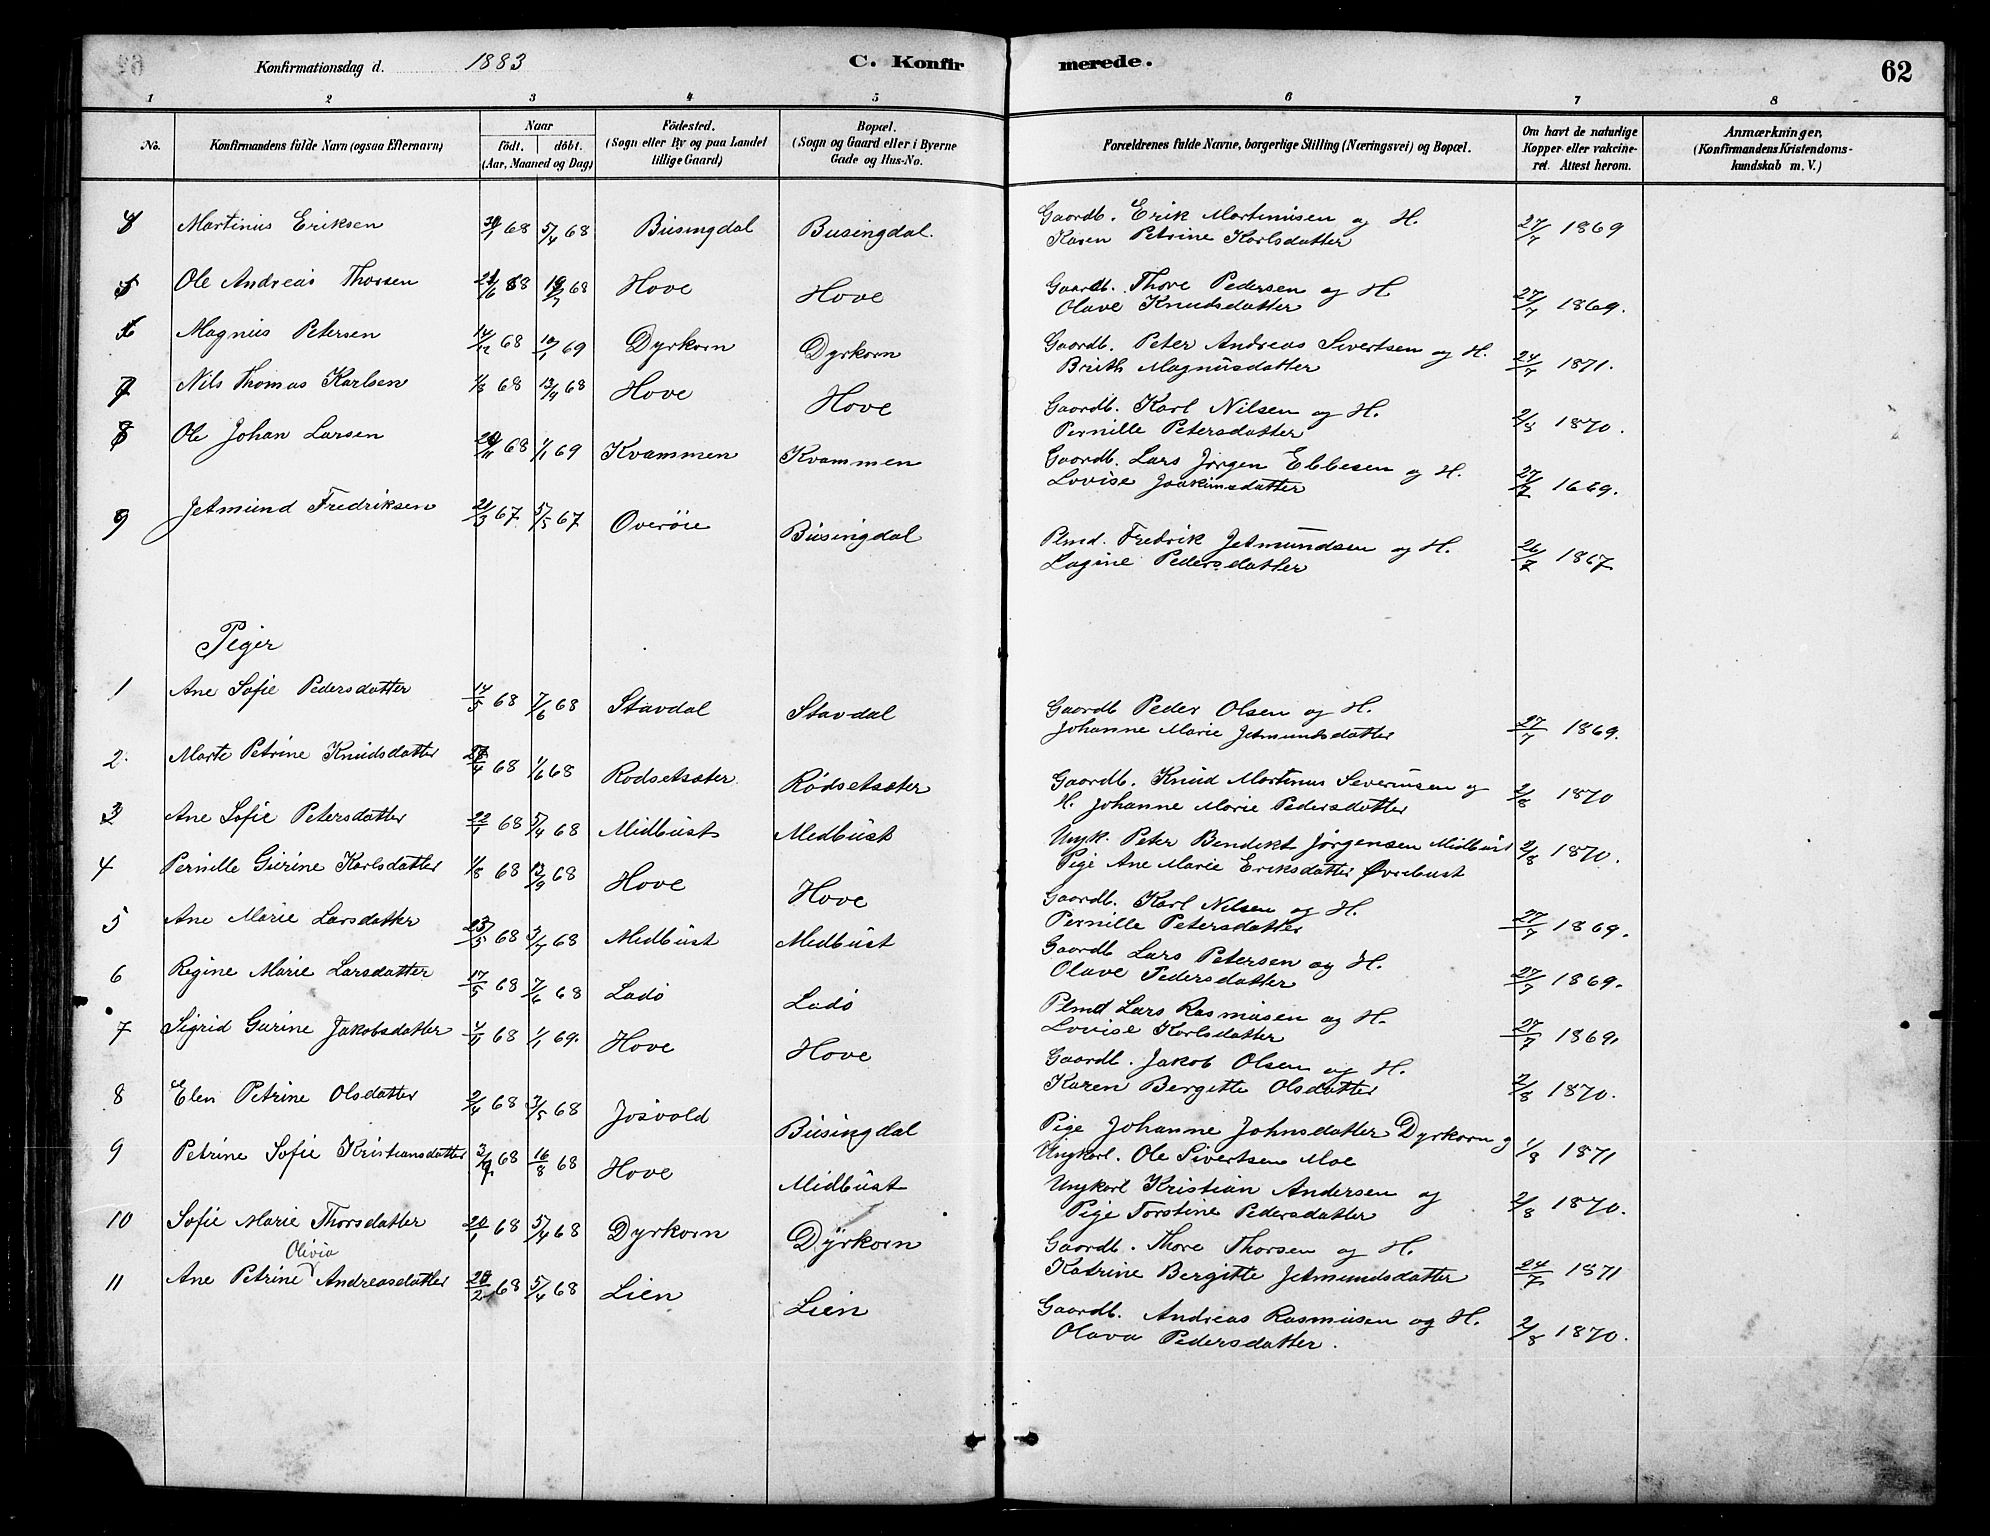 Konfirmationsdag d. 1883 C. Konfirmerede. 62
1 2 3 4 5 6 7 8
No. Konfirmandens fulde Navn (ogsaa Efternavn) Naar födt. döbt. (Aar, Maaned og Dag) Födested. (Sogn eller By og paa Landet tillige Gaard) Bopæl. (Sogn og Gaard eller i Byerne Gade og Hus-No. Forældrenes fulde Navne, borgerlige Stilling (Næringsvei) og Bopæl. Om havt de naturlige Kopper eller vakcineret. Attest herom. Anmærkninger, (Konfirmandens Kristendomskundskab m. V.)
Martinus Eriksen 68 5/4 68 Busingdal Busingdal. Gaardb. Erik Martinusen og H.
Karen Petrine Karlsdatter 27/7 1869
5 Ole Andreas Thorsen 68 68 Hove Hove Gaardb. Thore Pedersen og H.
Olave Knudsdatter 27/7 1869.
6 Magnus Petersen 14/12 68 10/1 69 Dyrkorn Dyrkorn Gaardb. Peter Andreas Sivertsen og H.
Brith Magnusdatter 24/7 1871.
7 Nils Thomas Karlsen 1/3 68 13/4 68 Hove Hove Gaardb. Karl Nilsen og H.
Pernille Petersdatter 2/8 1870.
8 Ole Johan Larsen 68 1/1 69 Kvammen Kvammen Gaardb. Lars Jørgen Ebbesen og H.
Lovise Joakimsdatter 27/7 1669.
9 Jetmund Fredriksen 21/3 67 5/5 67 Overöie Busingdal Plmd. Fredrik Jetmundsen og H.
Lagine Pedersdatter 26/7 1867
Piger
1 Ane Sofie Pedersdatter 14/5 68 7/6 68 Stavdal Stavdal Gaardb Peder Olsen og H.
Johanne Marie Jetmundsdatter 27/7 1869.
2. Marte Petrine Knudsdatter 68 1/6 68 Rodsetsæter Rödsetsæter Gaardb. Knud Martinus Severinsen og
H. Johanne Marie Pedersdatter 2/8 1870
3 Ane Sofie Petersdatter 22/1 68 5/4 68 Midbust Midbust Ungk. Peter Bendikt Jørgensen Midbust
Pige Ane Marie Eriksdatter Øvrebust 2/8 1870.
4 Pernille Gurine Karlsdatter 1/8 68 13/9 68 Hove Hove Gaardb. Karl Nilsen og H.
Pernille Petersdatter 27/7 1869.
5 Ane Marie Larsdatter 23/5 68 3/7 68 Midbust Midbust Gaardb Lars Petersen og H.
Olave Pedersdatter 27/7 1869.
6 Regine Marie Larsdatter 17/5 68 7/6 68 Ladö Ladö Plmd Lars Rasmusen og H.
Lovise Karlsdatter 27/7 1869,
7 Sigrid Gurine Jakobsdatter 68 1/1 69. Hove Hove Gaardb. Jakob Olsen og H.
Karen Bergitte Olsdatter 2/8 1870.
8 Elen Petrine Olsdatter 2/4 68 3/5 68 Josvold Busingdal Pige Johanne Johnsdatter Dyrkorn g
Ungkarl. Ole Sivertsen Moe 1/8 1871
9 Petrine Sofie Kristiansdatter 68 16/8 68 Hove Midbust Ungkarl Kristian Andersen og
Pige Torstine Pedersdatter 2/8 1870.
10 Sofie Marie Thorsdatter 20/1 68 5/4 68 Dyrkorn Dyrkorn Gaardb. Thore Thorsen og H.
Katrine Bergitte Jetmundsdatter 24/7 1871
Olivia
11 Ane Petrine Andreasdatter 68 5/4 68 Lien Lien Gaardb. Andreas Rasmusen og H.
Olava Pedersdatter. 2/8 1870.